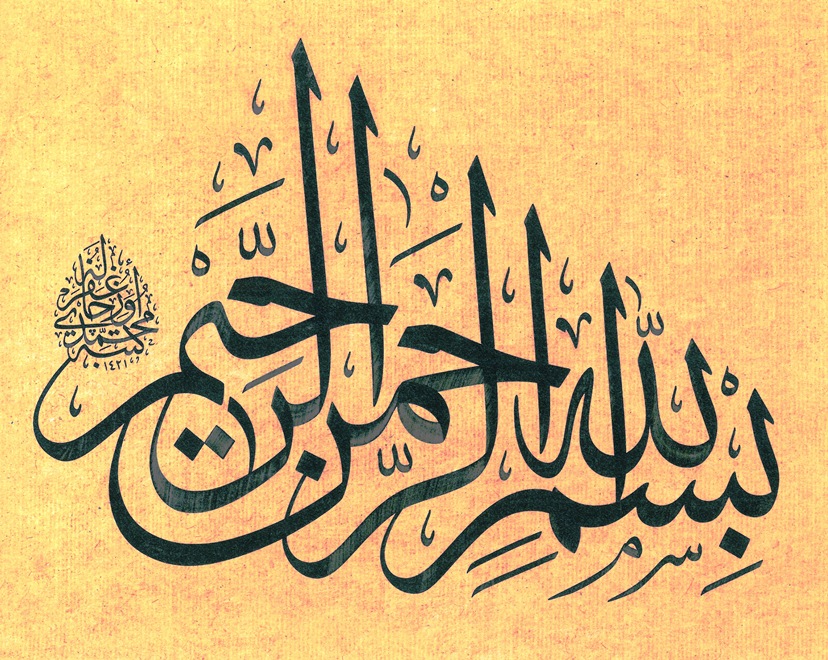 بِسْمِ اللّٰهِ الرَّحْمٰنِ الرَّحِيْمِ
كتبه محمد اوزجاى غفرله
١٤٢١